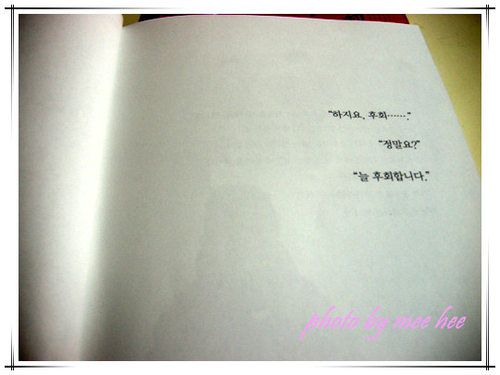 "하지요, 후회……."
"정말요?"
"늘 후회합니다."
photo by mee hee